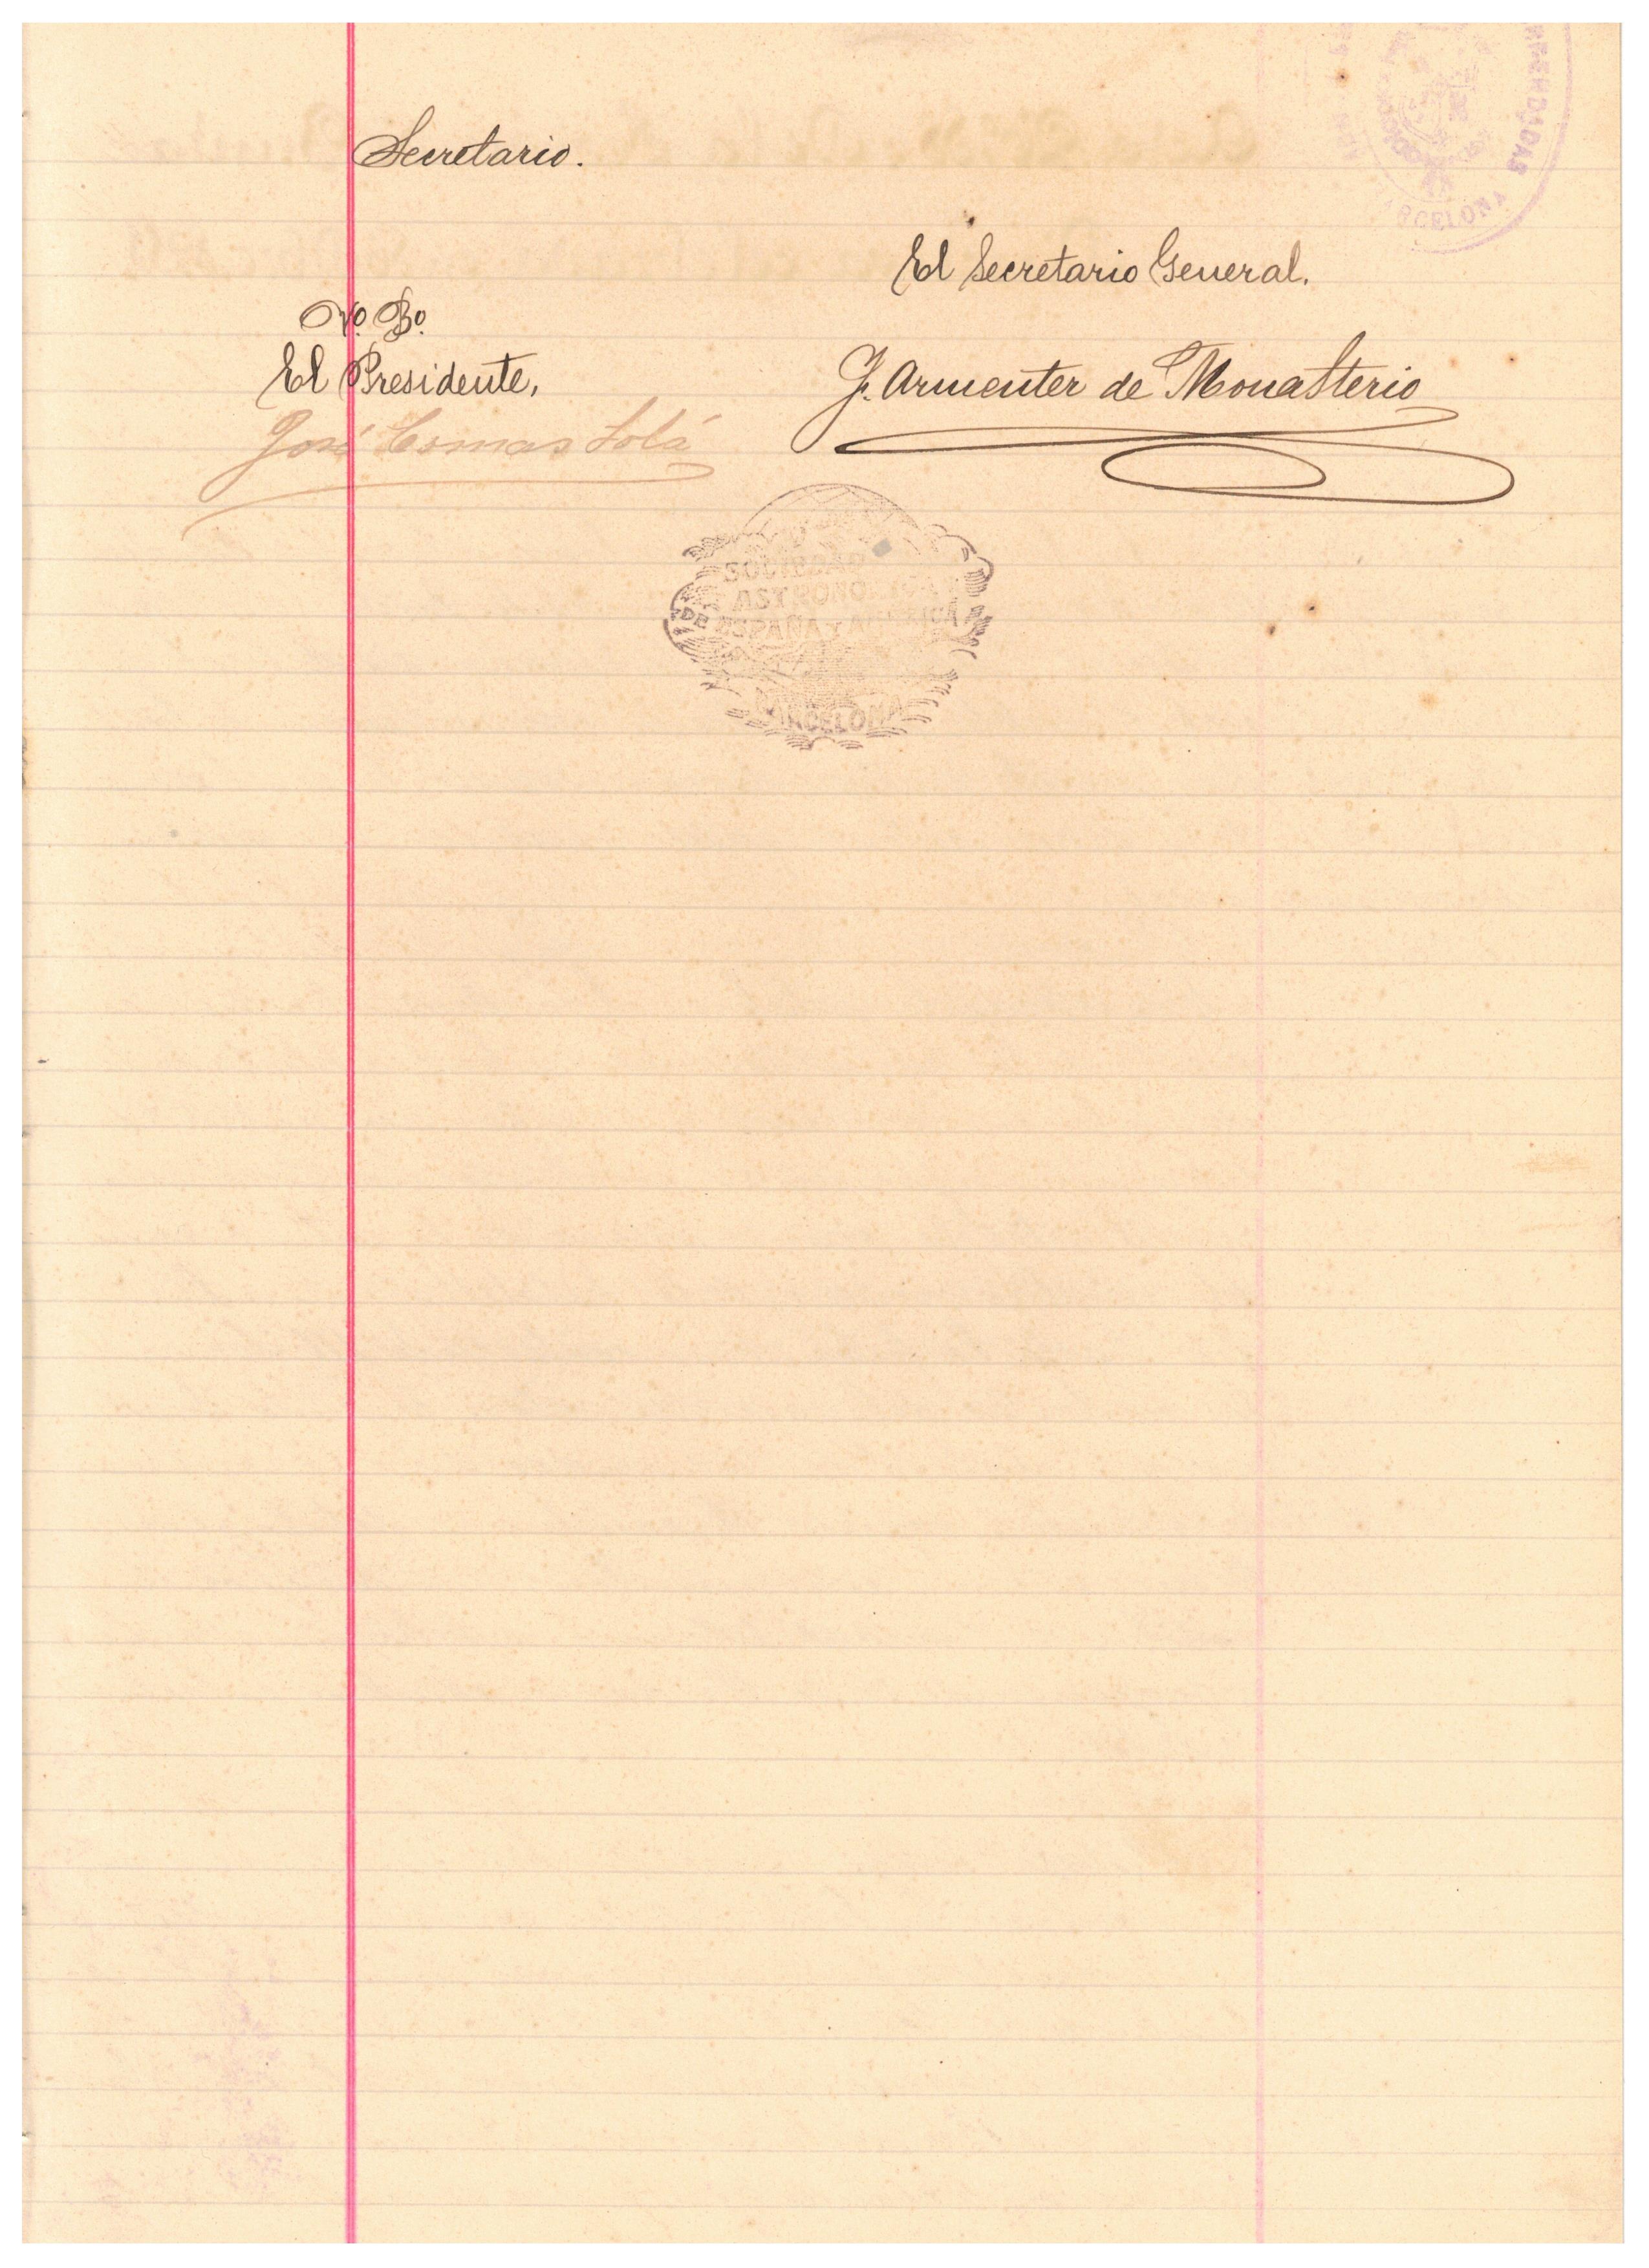 Secretario.
El Secretario General.
Vº Bº
El Presidente,
J. Armenter de Monasterio
José Comas Solá
SOCIEDAD
ASTRONOMICA
DE ESPAÑA Y AMERICA
BARCELONA
ARCELONA